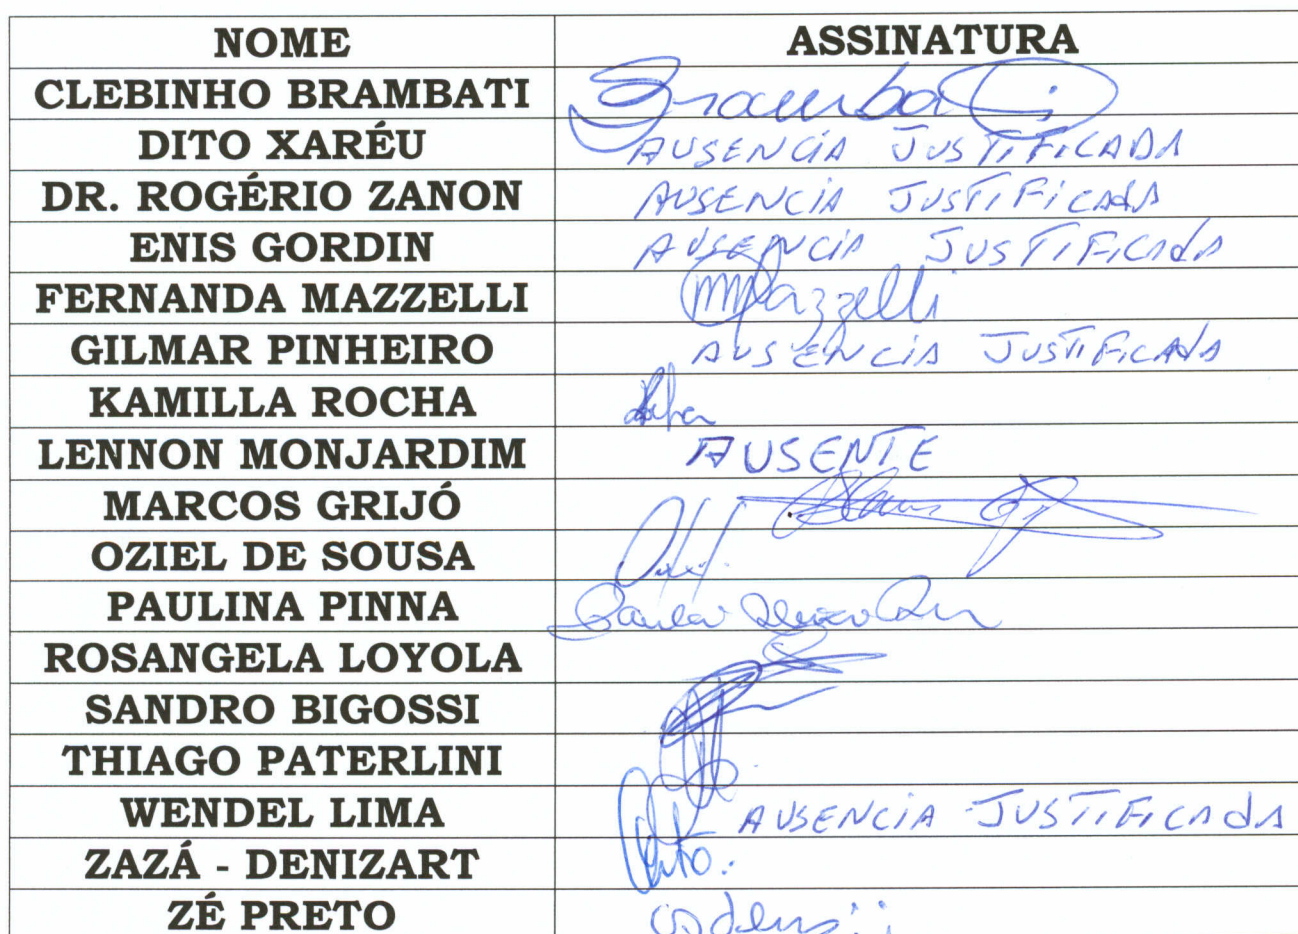 NOME ASSINATURA
CLEBINHO BRAMBATI Brambati
DITO XARÉU AUSENCIA JUSTIFICADA
DR. ROGÉRIO ZANON AUSENCIA JUSTIFICADA
ENIS GORDIN AUSENCIA JUSTIFICADA
FERNANDA MAZZELLI Mazzelli
GILMAR PINHEIRO AUSENCIA JUSTIFICADA
KAMILLA ROCHA
LENNON MONJARDIM AUSENTE
MARCOS GRIJÓ
OZIEL DE SOUSA
PAULINA PINNA
ROSANGELA LOYOLA
SANDRO BIGOSSI
THIAGO PATERLINI
WENDEL LIMA AUSENCIA JUSTIFICADA
ZAZÁ - DENIZART
ZÉ PRETO